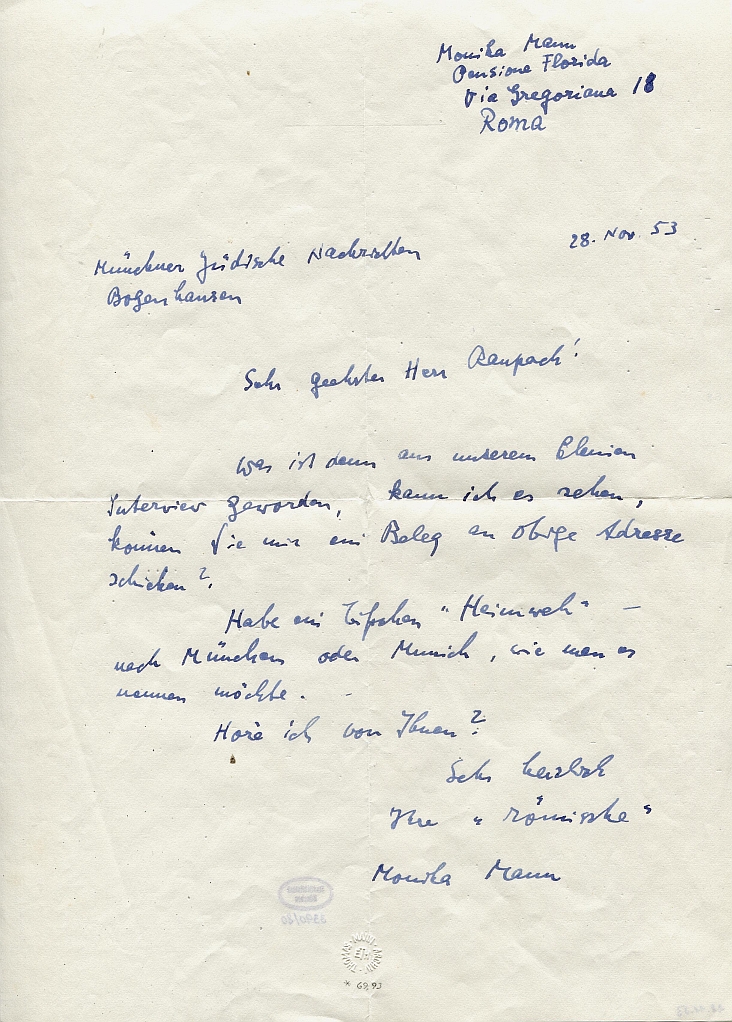 Monika Mann
Pensione Florida
Via Gregoriana 18
Roma
28. Nov. 53
Münchner Jüdische Nachrichten
Bogenhausen
Sehr geehrter Herr Raupach!
Was ist denn aus unserem kleinen
Interview geworden, kann ich es sehen,
können Sie mir ein Beleg an obige Adresse
schicken?
Habe ein Tüpfchen "Heimweh" –
nach München oder Munich, wie man es
nennen möchte. –
Höre ich von Ihnen?
Sehr herzlich
Ihre "römische"
Monika Mann
3370/80
THOMAS MANN
* 69,93